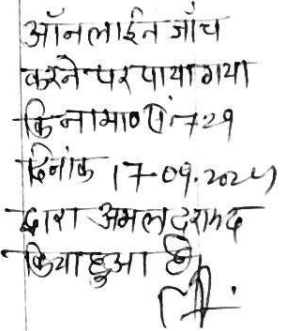 ऑनलाईन जाँच
करने पर पाया गया
कि नामा० सं० 729
दिनांक 17-09.2024
द्वारा अमलदरामद
किया हुआ है।